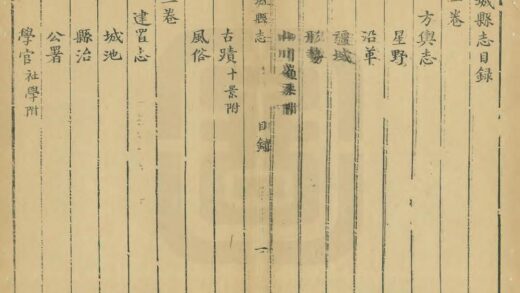 城縣志目錄
一卷
方輿志
星野
沿革
疆域
形勢
山川
城縣志
目錄
一
古蹟十景附
風俗
二卷
建置志
城池
縣治
公署
學官社學附